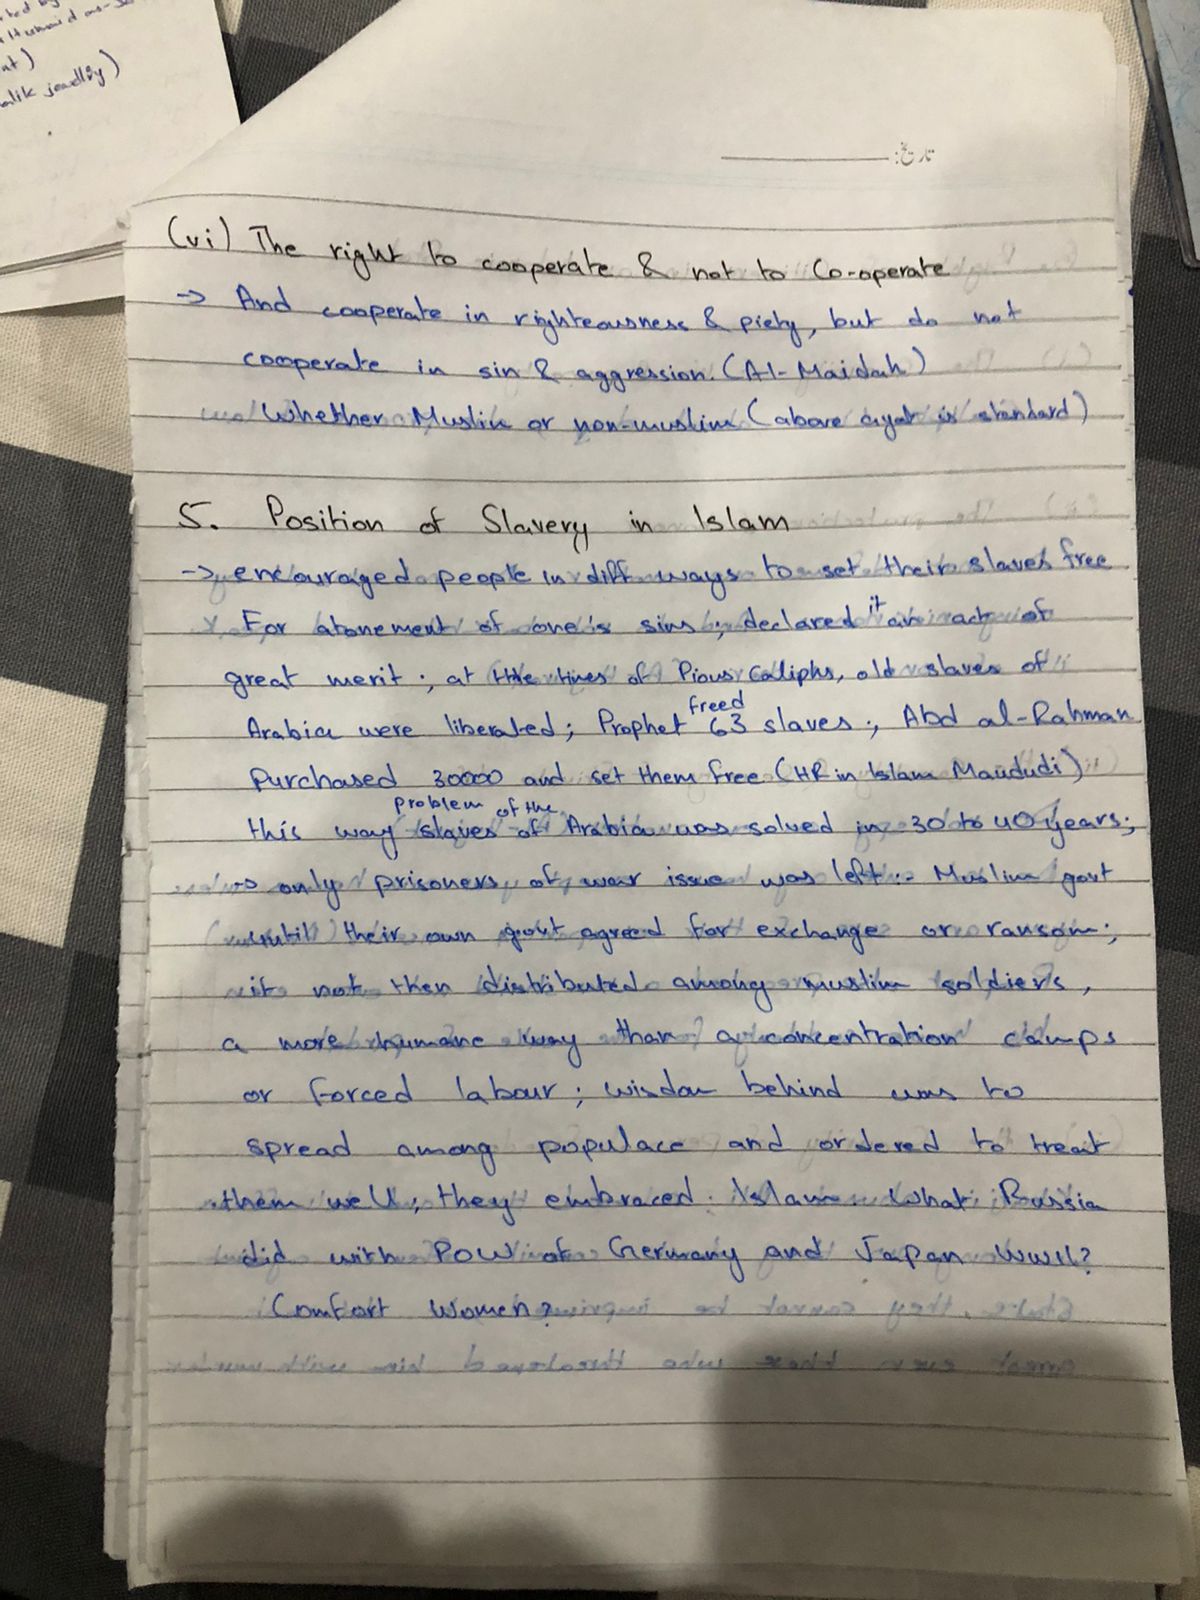 ted by
at)
alik jewelry)
تاریخ:
(vi) The right to cooperate & not to Co-operate
-> And cooperate in righteousness & piety, but do not
cooperate in sin & aggression. (Al-Maidah)
Whether Muslim or non-muslim (above ayat is standard)
5. Position of Slavery in Islam
-> encouraged people in diff ways to set their slaves free
For atonement of one's sins; declared it an act of
great merit; at the times of Pious Caliphs, old slaves of
Arabia were liberated; Prophet freed 63 slaves; Abd al-Rahman
purchased 30000 and set them free (HR in Islam Maududi)
this way problem of the slaves of Arabia was solved in 30 to 40 years;
only prisoners of war issue was left:- Muslim govt
until their own govt agreed for exchange or ransom;
if not then distributed among muslim soldiers,
a more humane way than concentration camps
or forced labour; wisdom behind was to
spread among populace and ordered to treat
them well; they embraced Islam. What Russia
did with POW of Germany and Japan WWII?
Comfort Women?